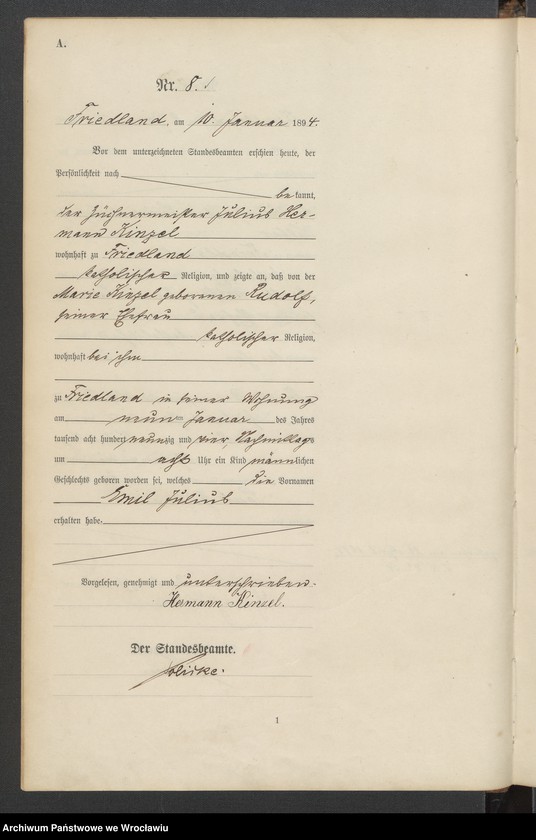 A.
Nr. 8.
Friedland, am 10. Januar 1894.
Vor dem unterzeichneten Standesbeamten erschien heute, der
Persönlichkeit nach
bekannt,
der Züchnermeister Julius Her-
mann Kinzel
wohnhaft zu Friedland
katholischer Religion, und zeigte an, daß von der
Marie Kinzel geborenen Rudolf,
seiner Ehefrau
katholischer Religion,
wohnhaft bei ihm
zu Friedland in seiner Wohnung
am neun Januar des Jahres
tausend acht hundert neunzig und vier, Nachmittags
um acht Uhr ein Kind männlichen
Geschlechts geboren worden sei, welches die Vornamen
Emil Julius
erhalten habe.
Vorgelesen, genehmigt und unterschrieben.
Hermann Kinzel.
Der Standesbeamte.
1
Archiwum Państwowe we Wrocławiu